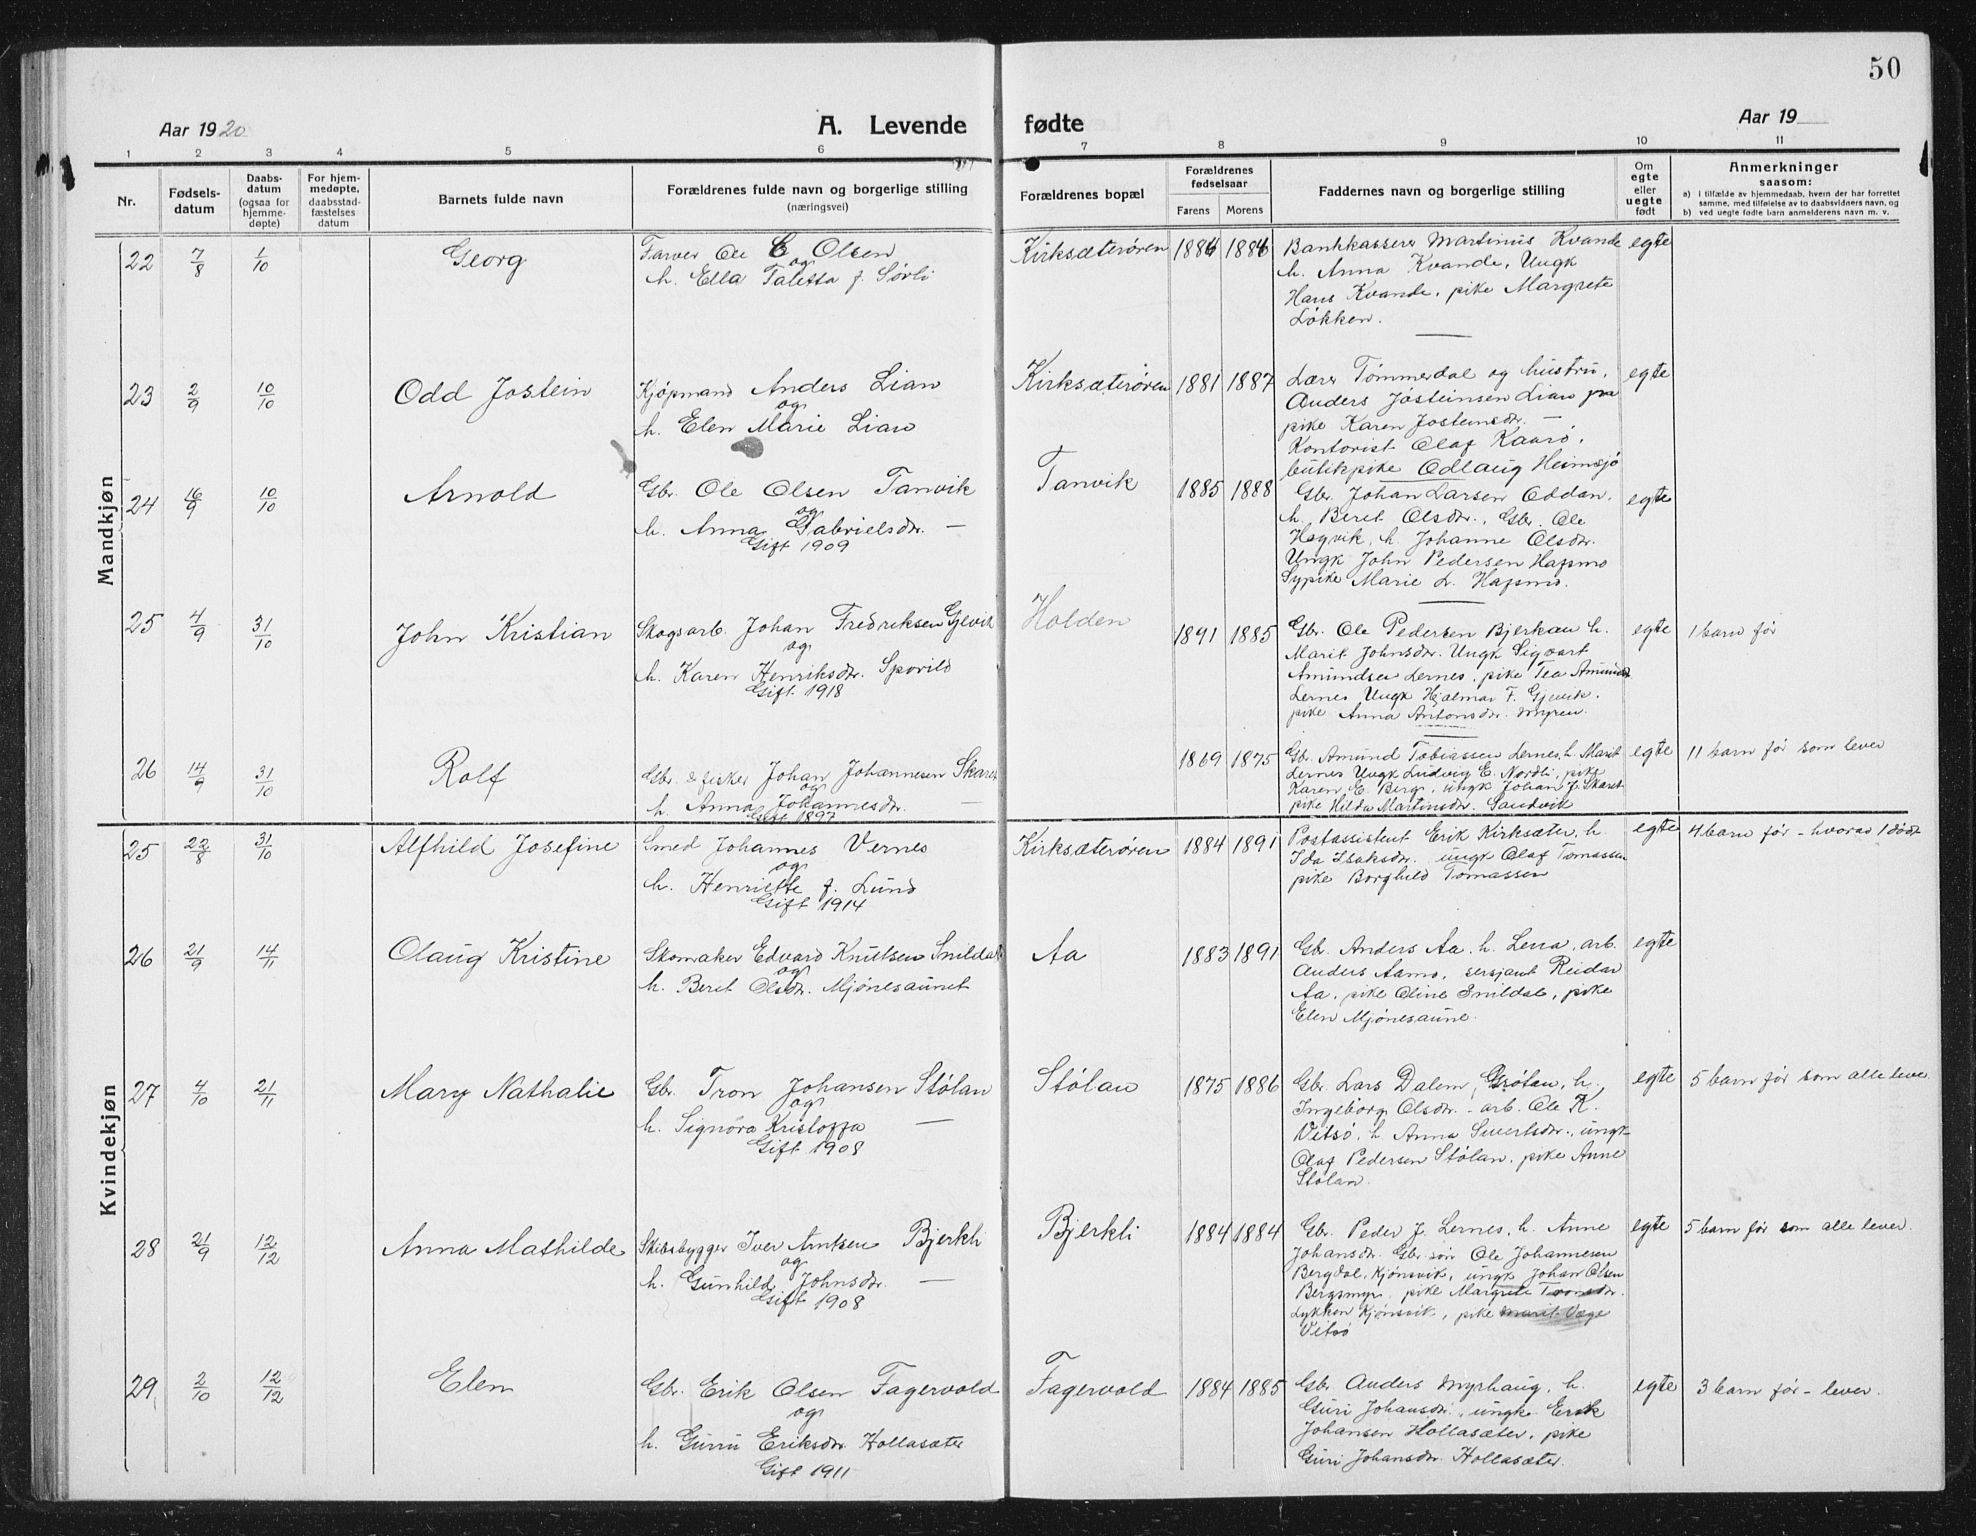 50
Aar 1920
A. Levende
fødte
Aar 19
1 2 3 4 5 6 7 8 9 10 11
Nr.
Fødsels-
datum
Daabs-
datum
(ogsaa for
hjemme-
døpte)
For hjem-
medøpte,
daabsstad-
fæstelses
datum
Barnets fulde navn
Forældrenes fulde navn og borgerlige stilling
(næringsvei)
Forældrenes bopæl
Forældrenes
fødselsaar
Farens Morens
Faddernes navn og borgerlige stilling
Om
egte
eller
uegte
født
Anmerkninger
saasom:
a) i tilfælde av hjemmedaab, hvem der har forrettet
samme, med tilføielse av to daabsvidners navn, og
b) ved uegte fødte barn anmelderens navn m. v.
Mandkjøn
22 7/8 1/10 Georg
Farver Ole C Olsen
og
h. Ella Taletta f. Sørli
Kirksæterøren 1886 1886
Bankkasserer Martinus Kvande
h. Anna Kvande, Ungk
Hans Kvande, pike Margrete
Løkken.
egte
23 2/9 10/10 Odd Jostein
Kjøpmand Anders Lian
og
h. Elen Marie Lian
Kirksæterøren 1881 1887
Lærer Tømmerdal og hustru,
Anders Josteinsen Lian
pike Karen Josteinsdr. —
Kontorist Olaf Kaarø,
butikpike Odlaug Heimsjø
egte
24 16/9 10/10 Arnold
Gbr. Ole Olsen Tanvik
og
h. Anna Gabrielsdr. —
Gift 1909
Tanvik 1885 1888
Gbr. Johan Larsen Oddan,
h. Beret Olsdr., Gbr. Ole
Hagvik, h. Johanne Olsdr.
Ungk John Pedersen Hafsmo
Sypike Marie L. Hafsmo.
egte
25 4/9 31/10 John Kristian
Skogsarb. Johan Fredriksen Gjevik
og
h. Karen Henriksdr. Spovild
Gift 1918
Holden 1891 1885
Gbr. Ole Pedersen Bjerkan h.
Marit Johnsdr. Ungk Sigvart
Amundsen Lernes, pike Tea Amundsdr
Lernes Ungk Hjalmar F. Gjevik,
pike Anna Antonsdr. Myren.
egte 1 barn før
26 14/9 31/10 Rolf
Gbr. & fisker Johan Johannesen Skaret
og
h. Anna Johannesdr. —
Gift 1897
1869 1875
Gbr. Amund Tobiassen Lernes, h. Marit
Lernes Ungk Ludvig E. Nordli, pike
Karen E. Berg, ungk Johan J. Skaret
pike Hilda Martinsdr. Sandvik
egte 11 barn før som lever
Kvindekjøn
25 22/8 31/10 Alfhild Josefine
Smed Johannes Vernes
og
h. Henriette f. Lund
Gift 1914
Kirksæterøren 1884 1891
Postassistent Erik Kirksæter, h.
Ida Isaksdr. ungk Olaf Tomassen
pike Borghild Tomassen
egte 4 barn før - hvorav 1 død
26 21/9 14/11 Olaug Kristine
Skomaker Edvard Knutsen Snildal
og
h. Beret Olsdr. Mjønesaunet
Aa 1883 1891
Gbr. Anders Aa, h. Lena, arb.
Anders Aamo, sersjant Reidar
Aa, pike Oline Snildal, pike
Elen Mjønesaune.
egte
27 4/10 21/11 Mary Nathalie
Gbr. Tron Johansen Stølan
og
h. Signora Kristoffa —
Gift 1908
Stølan 1875 1886
Gbr. Lars Dalem, Grøtan, h.
Ingeborg Olsdr. - arb. Ole K.
Vitsø, h. Anna Sivertsdr., ungk
Olaf Pedersen Stølan, pike Anne
Stølan.
egte 5 barn før som alle lever
28 21/9 12/12 Anna Mathilde
Skibsbygger Iver Arntsen Bjerkli
og
h. Gunhild Johnsdr. —
Gift 1908
Bjerkli 1884 1884
Gbr. Peder J. Lernes, h. Anne
Johansdr. Gbr. søn Ole Johannesen
Bergdal, Kjønsvik, ungk Johan Olsen
Bergsmyr, pike Margrete Tronsdr.
Lykken Kjønsvik, pike Marit Væge
Vitsø
egte 5 barn før som alle lever.
29 2/10 12/12 Elen
Gbr. Erik Olsen Fagervold
og
h. Gurru Eriksdr. Hollasæter
Gift 1911
Fagervold 1884 1885
Gbr. Anders Myrhaug, h.
Guri Johansdr., ungk Erik
Johansen Hollasæter, pike
Guri Johansdr. Hollasæter.
egte 3 barn før - lever.